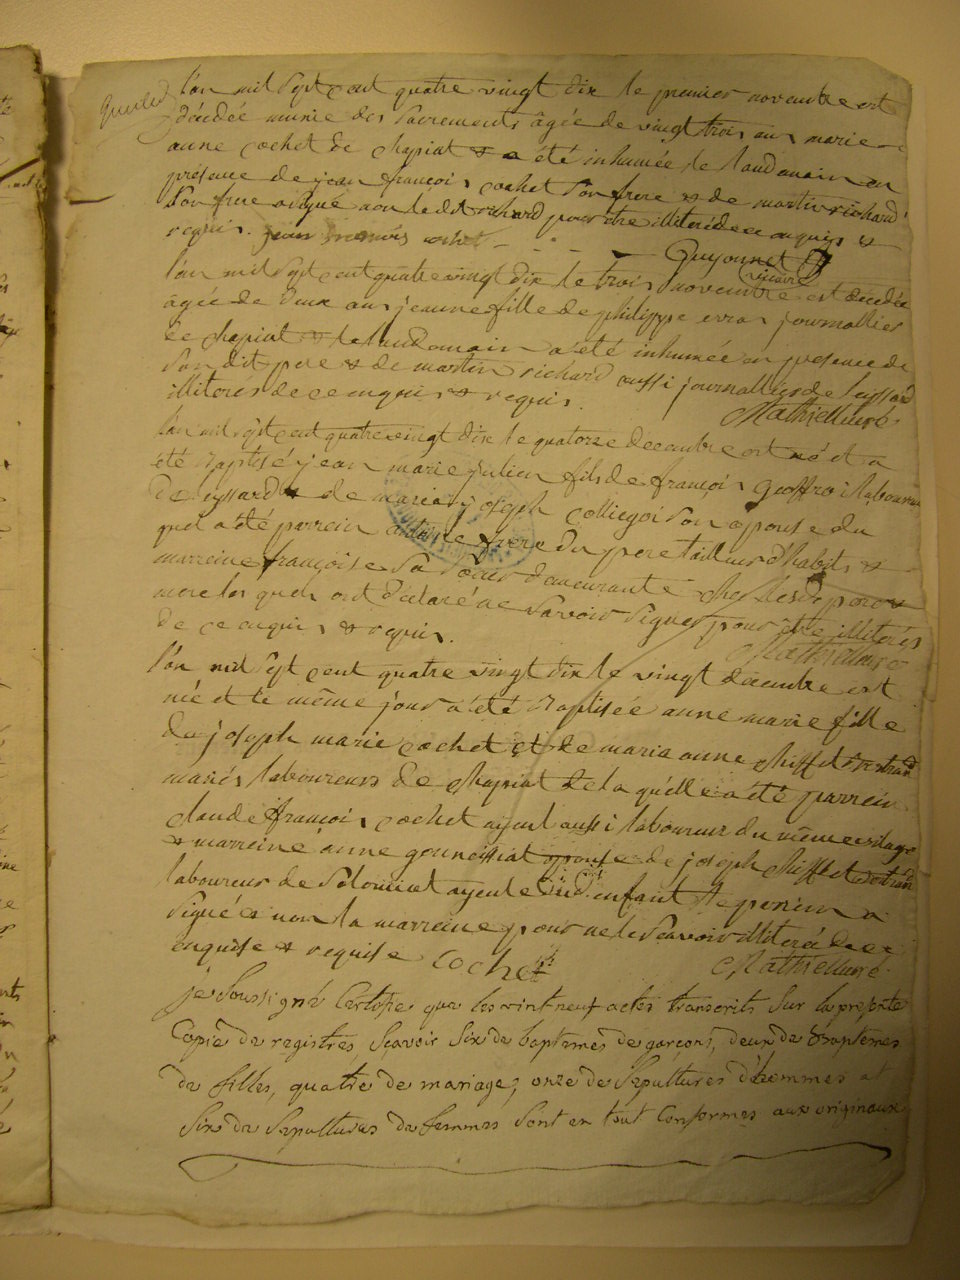 l'an mil sept cent quatre vingt dix le premier novembre est
décédée munie des sacrements âgée de vingt trois ans marie
anne cochet de chapiat & a été inhumée le landemain en
présence de jean françois cochet son frere & de martin richard
son frere a signé non ledit richard pour être illiteré de ce enquis &
requis. jean françois cochet
Guyonnet
vicaire
l'an mil sept cent quatre vingt dix le trois novembre est décédée
âgée de deux ans jeanne fille de philippe evrar journallier
de chapiat & le landemain a été inhumée en présence de
son dit pere & de martin richard aussi journallier de
illiterés de ce enquis & requis.
l'an mil sept cent quatre vingt dix le quatorze decembre est né et a
été baptisé jean marie julien fils de françoi laboureur
de & de marie joseph son epouse du
quel a été parrein frere du pere tailleur d'habits &
marreine françoise sa soeur demeurante chez lesdt pere &
mere lesquels ont déclaré ne savoir signer pour être illiterés
de ce enquis & requis.
l'an mil sept cent quatre vingt dix le vingt decembre est
née et le même jour a été baptisée anne marie fille
de joseph marie cochet et de marie anne chifflet
mariés laboureurs de chapiat de laquelle a été parrein
claude françoi cochet ayeul aussi laboureur du même village
& marreine anne epouse de joseph chifflet
laboureur de ayeule dud. enfant le parein a
signé & non la marreine pour ne le savoir illiterée de ce
enquise & requise cochet
je soussigné certifie que les vint neuf actes transcrits sur la presente
copie de registres, sçavoir six de baptemes de garçons, deux de baptemes
de filles, quatre de mariages, onze de sepultures d'hommes et
six de sepultures de femmes sont en tout conformes aux originaux